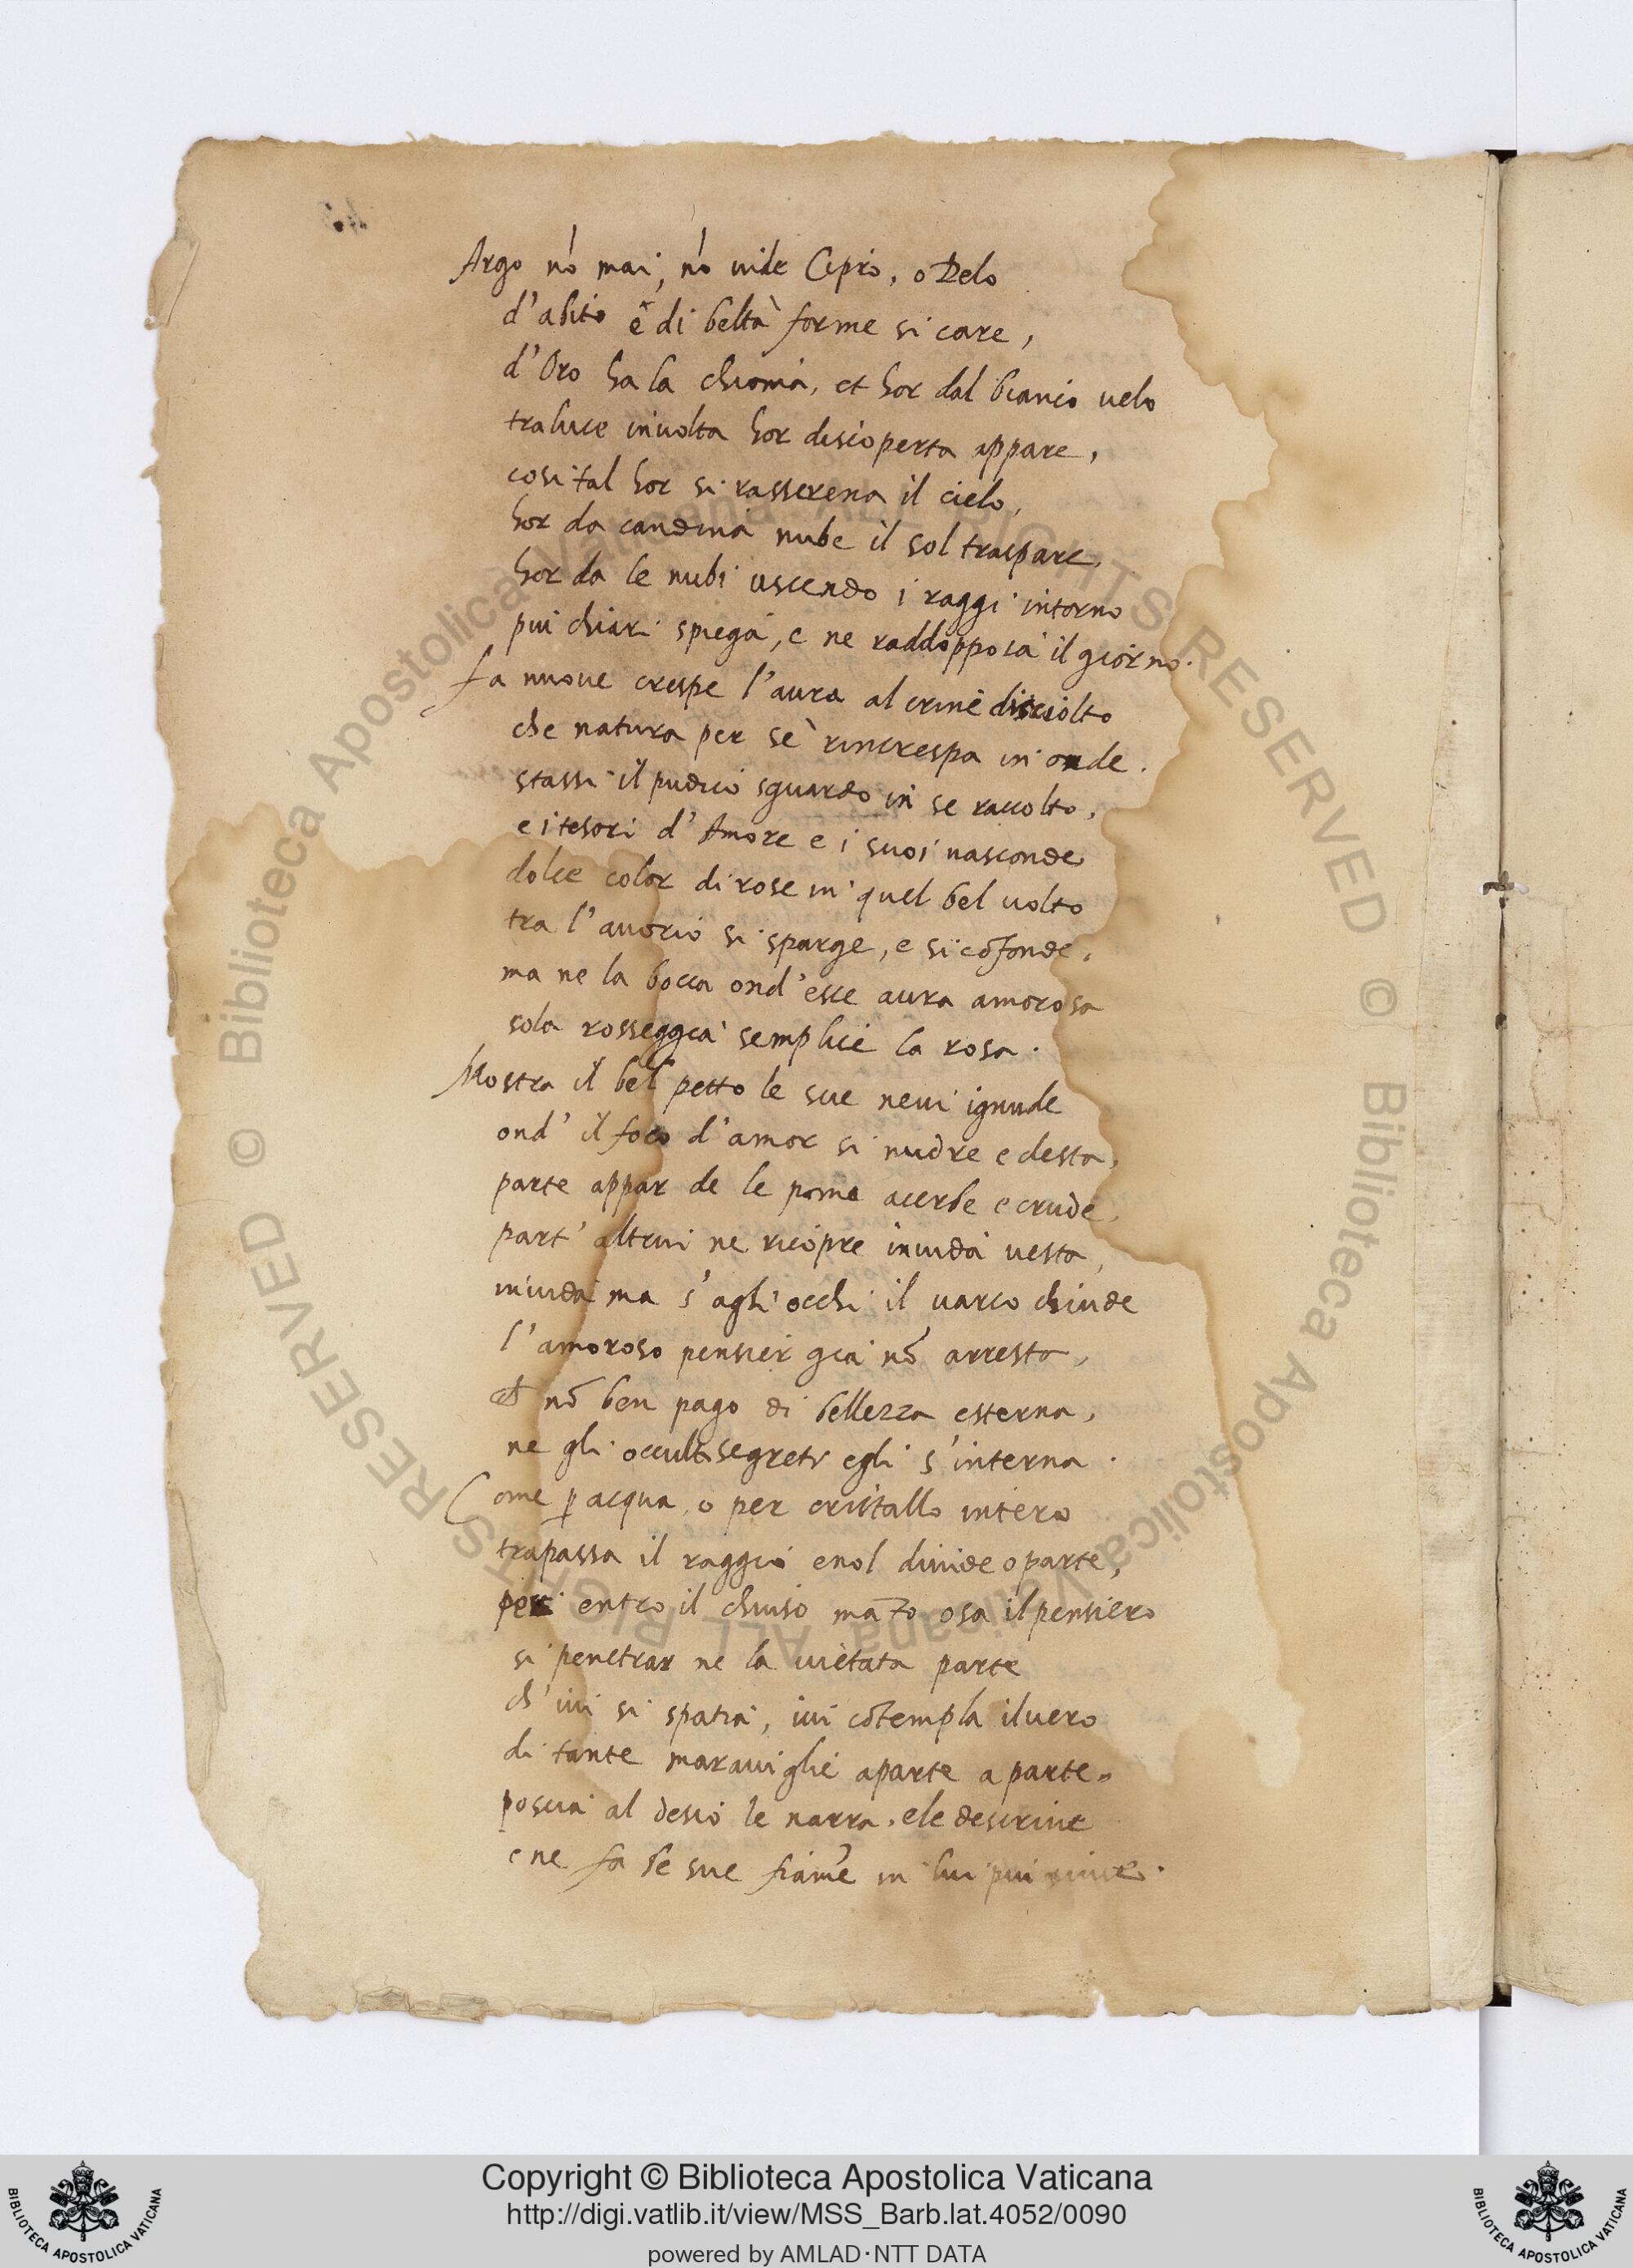 Argo nō mai, nō uide Cipro, o Delo
d'abito e di beltà forme si care,
d'Oro ha la chioma, et hor dal bianco uelo
traluce inuolta hor discoperta appare,
cosi tal hor si rasserena il cielo,
hor da candida nube il sol traspare,
hor da le nubi uscendo i raggi intorno
piu chiari spiega, e ne raddoppia il giorno.
fa nuoue crespe l'aura al crine disciolto
che natura per sè rincrespa in onde.
stassi il pudico sguardo in se raccolto,
e i tesori d'Amore e i suoi nasconde
dolce color di rose in quel bel uolto
tra l'auorio si sparge, e si cōfonde,
ma ne la bocca ond'esce aura amorosa
sola rosseggia semplice la rosa.
Mostra il bel petto le sue neui ignude
ond' il foco d'amor si nudre e desta,
parte appar de le pome acerbe e crude,
part' altrui ne ricopre inuida uesta,
inuida ma s'agli occhi il uarco chiude
l'amoroso pensier gia nō arresta,
et nō ben pago di bellezza esterna,
ne gli occulti segreti egli s'interna.
Come p acqua, o per cristallo intero
trapassa il raggio e nol diuide o parte,
per entro il chiuso māto osa il pensiero
si penetrar ne la uietata parte
ch'iui si spatia, iui cōtempla il uero
di tante marauiglie a parte a parte.
poscia al desio le narra. e le descriue
e ne fa le sue fiāme in lui piu uiue.
Copyright © Biblioteca Apostolica Vaticana
http://digi.vatlib.it/view/MSS_Barb.lat.4052/0090
powered by AMLAD·NTT DATA
BIBLIOTECA APOSTOLICA VATICANA
BIBLIOTECA APOSTOLICA VATICANA
© Biblioteca Apostolica Vaticana ALL RIGHTS RESERVED © Biblioteca Apostolica Vaticana ALL RIGHTS RESERVED